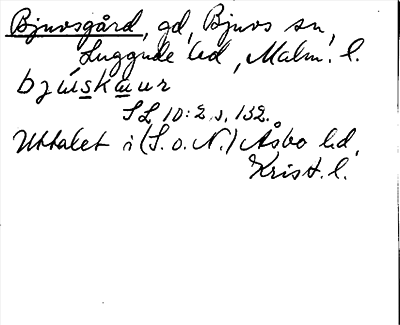 Bjuvsgård, gd, Bjuvs sn,
Luggude hd, Malm. l.
bjúskɯur
SL 10:2 s. 132.
Uttalet i (S. o. N.) Åsbo hd,
Krist. l.